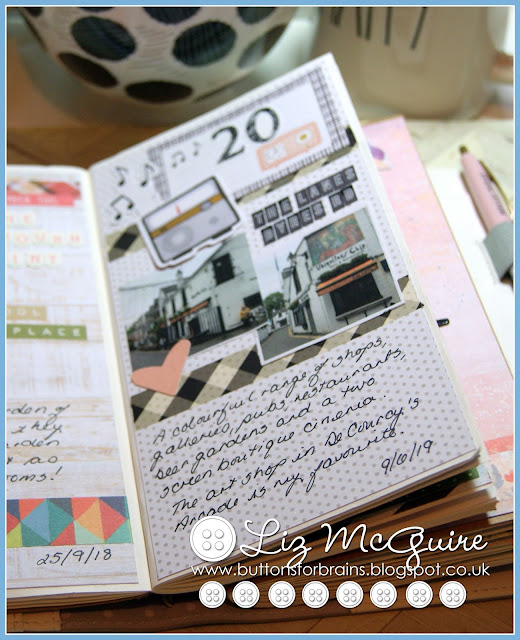 PLACE
25/9/18
20
THIS
Ubiquitous Chip
A colourful range of shops,
galleries, pubs, restaurants,
beer gardens and a two
screen boutique cinema.
The art shop in De Courcy's
Arcade is my favourite.
9/6/19
Liz McGuire
www.buttonsforbrains.blogspot.co.uk